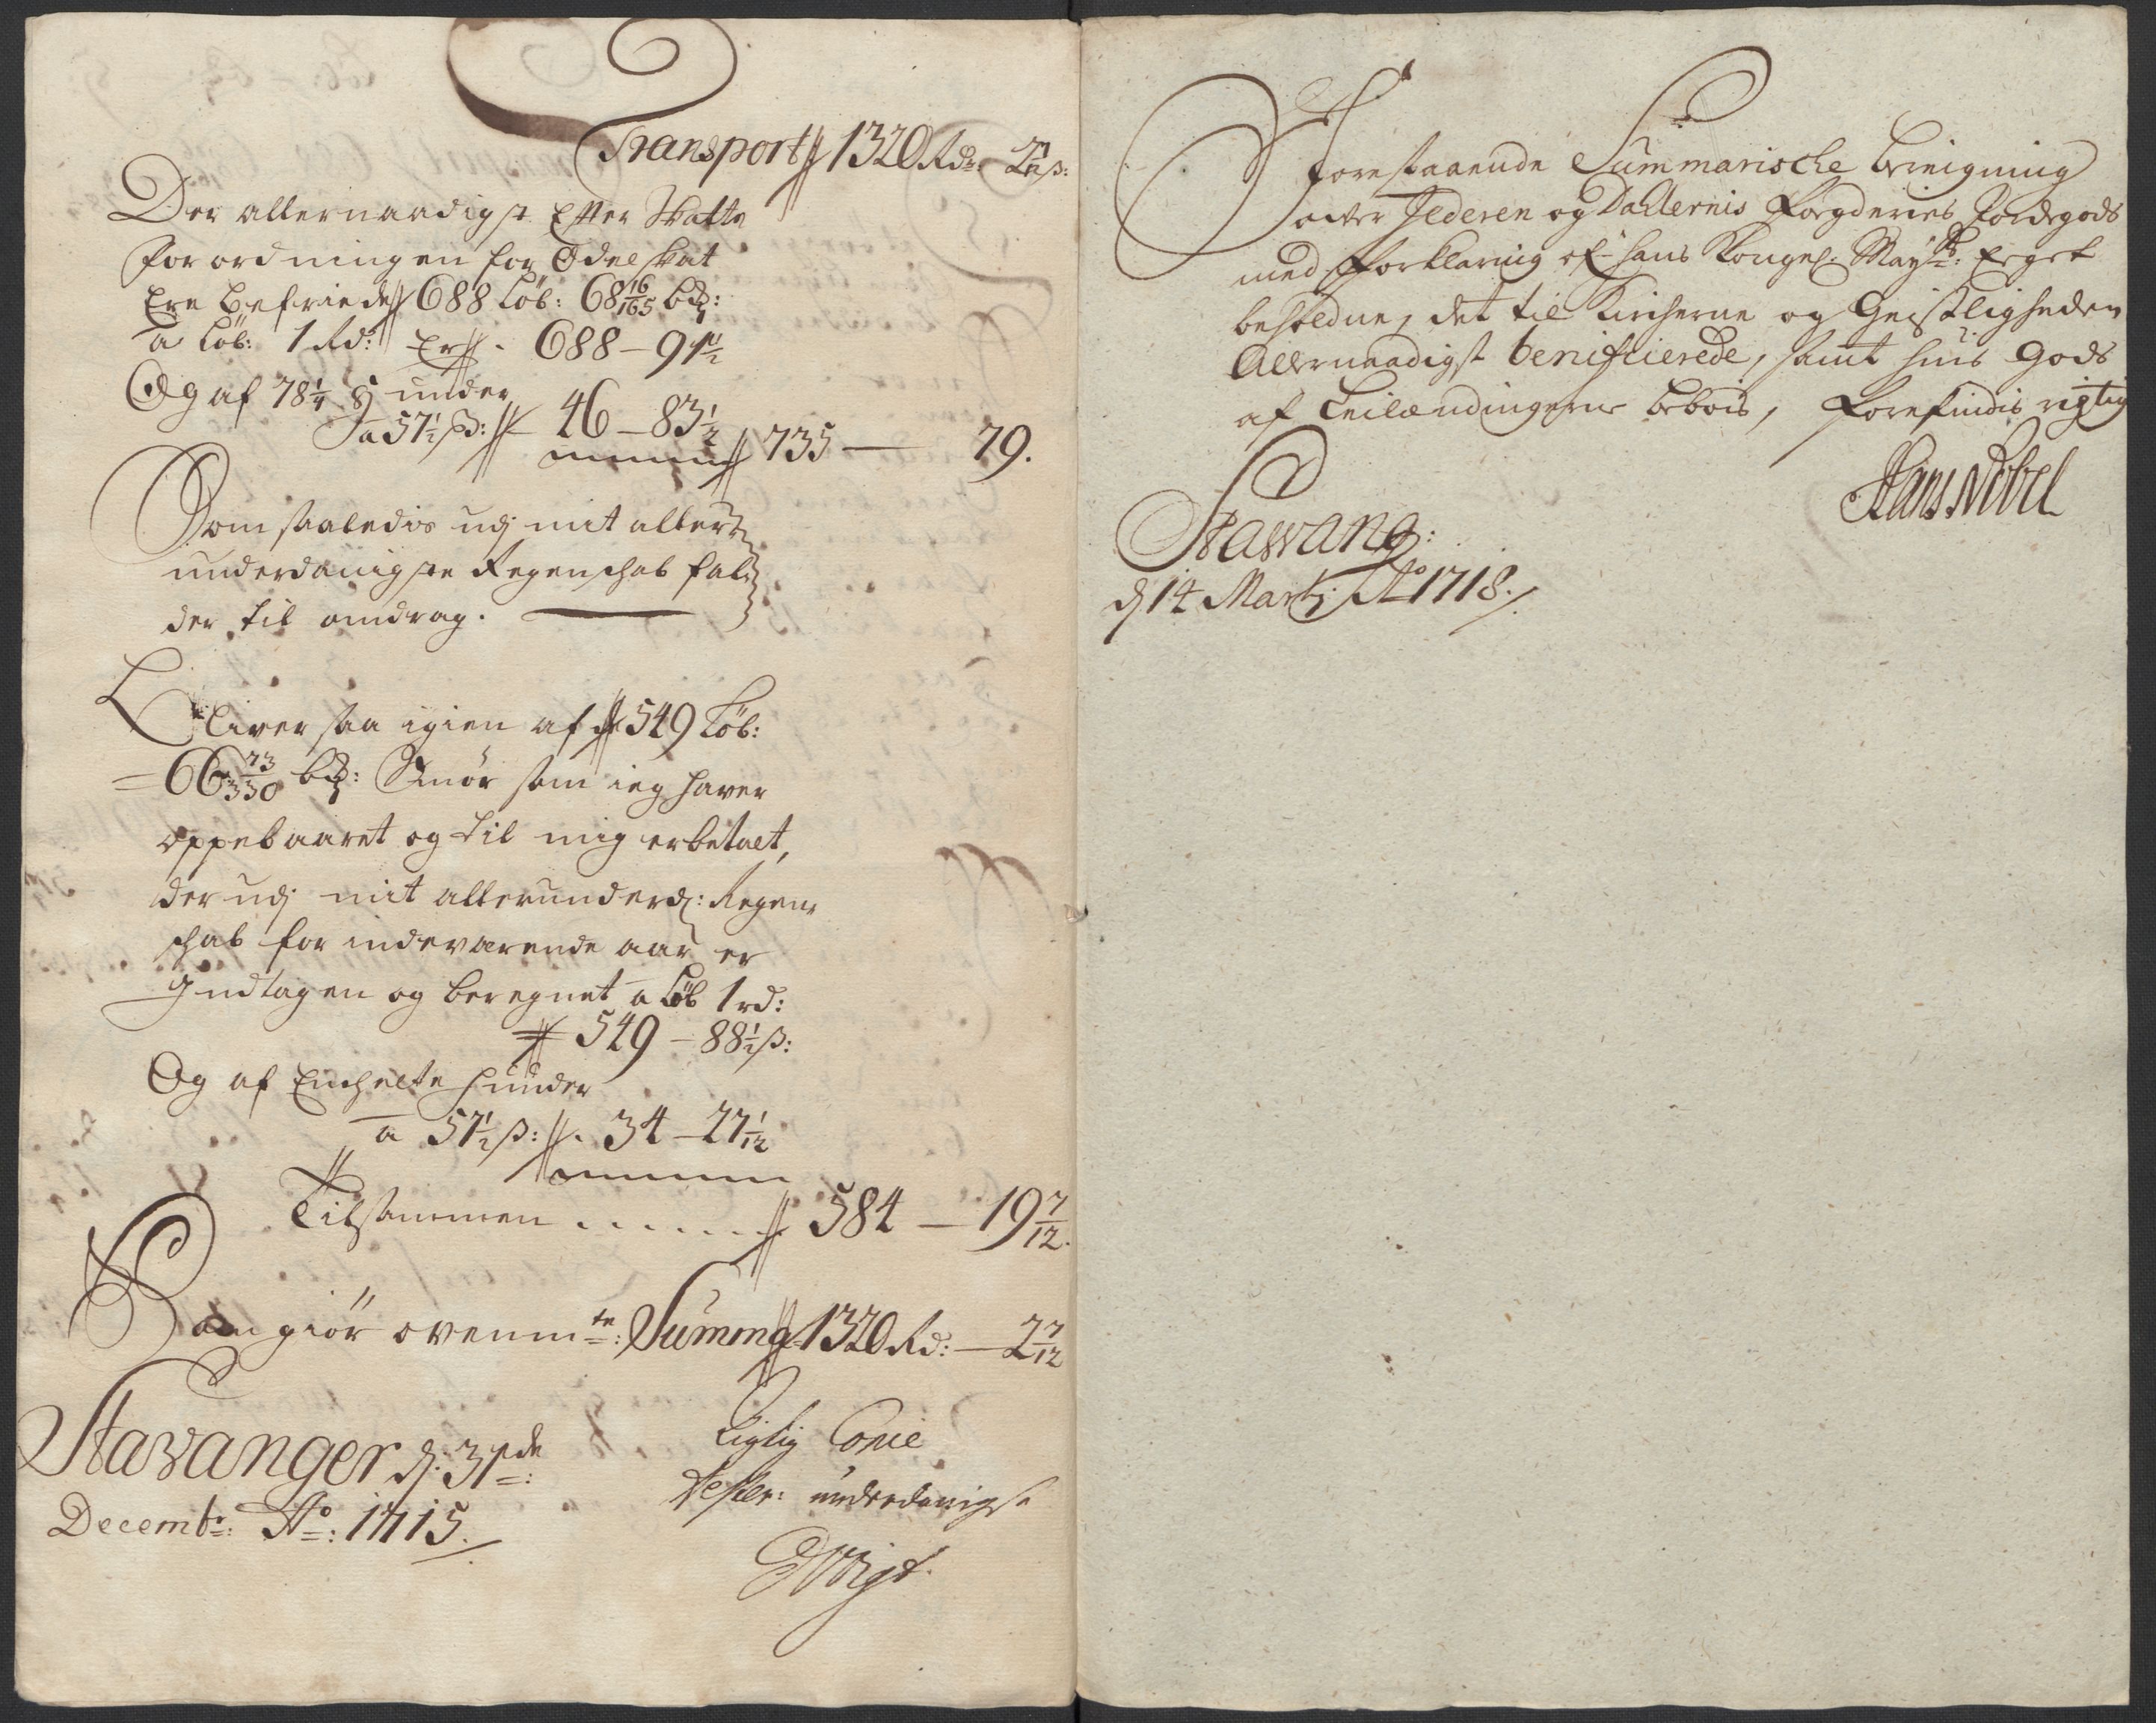 Transport 1320 Rd: 2 7/12 ß:
Der allernaadigst Efter Skatte
forordningen for Odelskat
Ere befriede 688 Løb: 68 16/165 bd:
a Løb: 1 Rd: Er 688 – 91 1/2
Og af 78 1/4 hunder
a 57 1/2 ß: 46 – 83 1/2
735 — 79.
Som saaledis udj mit aller
underdanigste Regenschab fal
der til andrag.
Bliver saa igien af 549 Løb:
66 73/330 bd: Smør som ieg haver
oppebaaret og til mig erbetalt,
der udj mit allerunderd: Regen
schab for indeværende aar er
Indtagen og beregnet a Løb 1 rd:
549 – 88 1/2 ß:
Og af Enchelte hunder
a 57 1/2 ß: 34 – 27 1/12
Tilsammen . . . . . . 584 — 19 7/12.
Som giør ovenm:te Summa 1320 Rd: — 2 7/12
Stavanger d: 31de
Decembr: Ao: 1715.
Rigtig Copie
Tester: underdanigst
Forestaaende Summarische Beregning
over Jederen og Dallernis Fogderies Jordegods
med forklaring af hans Kongel: Maytz: Eget
beholdne, det til Kircherne og Geistligheden
Allernaadigst benificierede, samt huis Gods
af Leilændingerne beboes, forefindis rigtig
Hans Nobel
Stawang:
d 14 Martj Ao 1718.